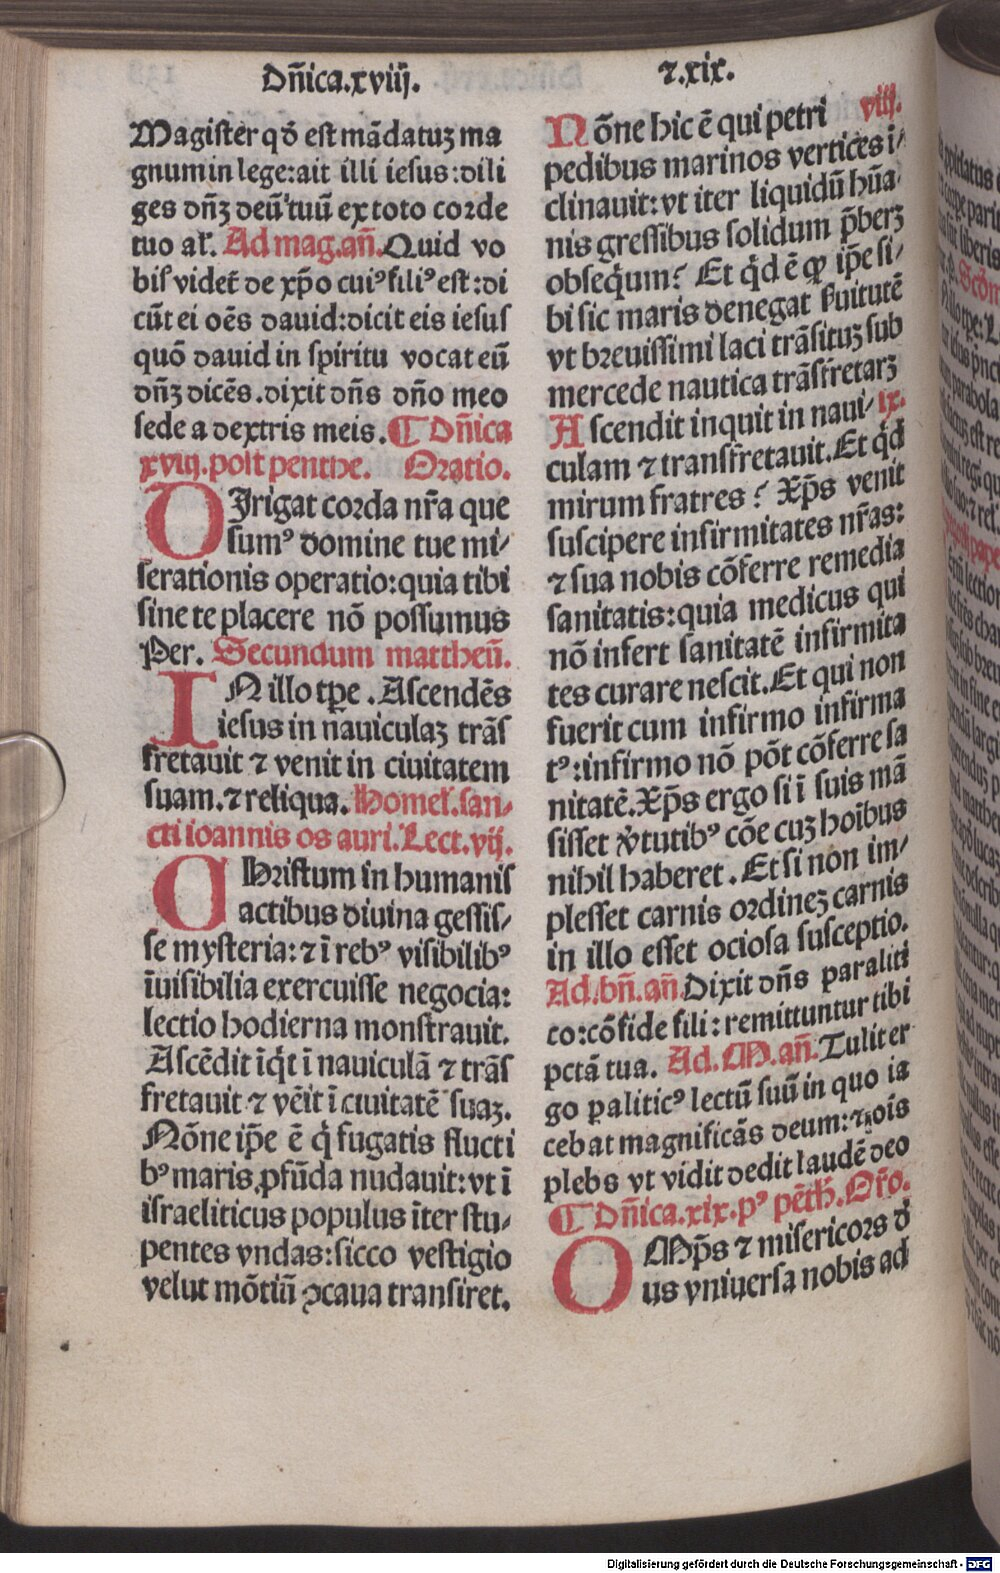 Dn̄ica.xviij.
⁊.xix.
Magister qd̄ est mādatuꝫ ma
gnum in lege: ait illi iesus: dili
ges dn̄ꝫ deū tuū ex toto corde
tuo al'. Ad mag. an̄. Quid vo
bis videt̄ de xp̄o cuiꝰ filiꝰ est: di
cūt ei oēs dauid: dicit eis iesus
quō dauid in spiritu vocat eū
dn̄ꝫ dicēs. dixit dn̄s dn̄o meo
sede a dextris meis. ¶ Dn̄ica
xviij. post penthe. Oratio.
DIrigat corda nr̄a que
sumꝰ domine tue mi⸗
serationis operatio: quia tibi
sine te placere nō possumus
Per. Secundum mattheū.
IN illo tp̄e. Ascendēs
iesus in nauiculaꝫ trās
fretauit ⁊ venit in ciuitatem
suam. ⁊ reliqua. Homel'. san⸗
cti ioannis os auri. Lect. vij.
CHristum in humanis
actibus diuina gessis⸗
se mysteria: ⁊ ī rebꝰ visibilibꝰ
īuisibilia exercuisse negocia:
lectio hodierna monstrauit.
Ascēdit īq̇t ī nauiculā ⁊ trās
fretauit ⁊ vēit ī ciuitatē suaꝫ.
Nōne ip̄e ē q̇ fugatis flucti
bꝰ maris ꝓfūda nudauit: vt ī
israeliticus populus īter stu⸗
pentes vndas: sicco vestigio
velut mōtiū ꝯcaua transiret.
Nōne hic ē qui petri viij.
pedibus marinos vertices i⸗
clinauit: vt iter liquidū hūa⸗
nis gressibus solidum p̄berꝫ
obseq̇um? Et q̇d ē ꝙ ip̄e si⸗
bi sic maris denegat ẜuitutē
vt breuissimi laci trāsituꝫ sub
mercede nautica trāsfretarꝫ
Ascendit inquit in naui⸗ ix.
culam ⁊ transfretauit. Et q̇d
mirum fratres? Xp̄s venit
suscipere infirmitates nr̄as:
⁊ sua nobis cōferre remedia
sanitatis: quia medicus qui
nō infert sanitatē infirmita
tes curare nescit. Et qui non
fuerit cum infirmo infirma
tꝰ: infirmo nō pōt cōferre sa
nitatē. Xp̄s ergo si ī suis mā
sisset v̓tutibꝰ cōe cuꝫ hoibus
nihil haberet. Et si non im⸗
plesset carnis ordineꝫ carnis
in illo esset ociosa susceptio.
Ad. bn̄. an̄. Dixit dn̄s paraliti
co: cōfide fili: remittuntur tibi
pctā tua. Ad. M. an̄. Tulit er
go ꝑaliticꝰ lectū suū in quo ia
cebat magnificās deum: ⁊ ois
plebs vt vidit dedit laudē deo
¶ Dn̄ica. xix. pꝰ pēth̄. Or̄o.
OMp̄s ⁊ misericors d̓
us vniuersa nobis ad
Digitalisierung gefördert durch die Deutsche Forschungsgemeinschaft - DFG